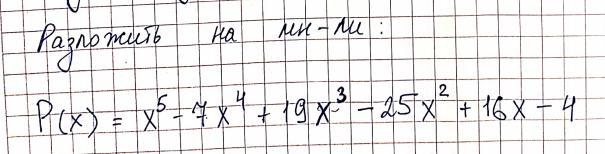 Разложить на мн-ли:
P(x) = x⁵ - 7x⁴ + 19x³ - 25x² + 16x - 4